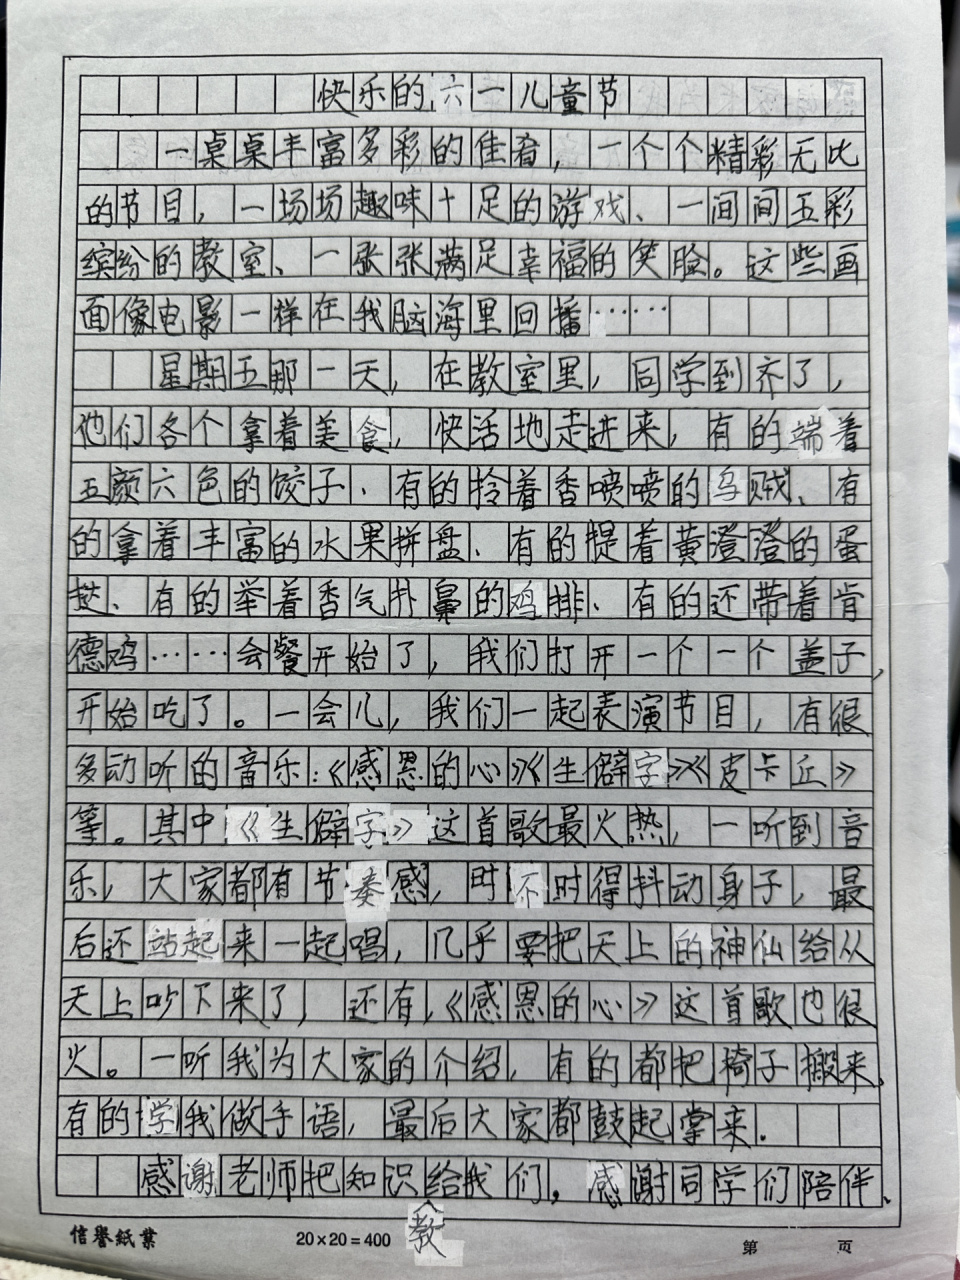 快乐的六一儿童节
一桌桌丰富多彩的佳肴，一个个精彩无比
的节目，一场场趣味十足的游戏、一间间五彩
缤纷的教室、一张张满足幸福的笑脸。这些画
面像电影一样在我脑海里回播……
星期五那一天，在教室里，同学到齐了，
他们各个拿着美食，快活地走进来，有的端着
五颜六色的饺子、有的拎着香喷喷的乌贼、有
的拿着丰富的水果拼盘、有的提着黄澄澄的蛋
挞、有的举着香气扑鼻的鸡排、有的还带着肯
德鸡……会餐开始了，我们打开一个一个盖子，
开始吃了。一会儿，我们一起表演节目，有很
多动听的音乐：《感恩的心》《生僻字》《皮卡丘》
等。其中《生僻字》这首歌最火热，一听到音
乐，大家都有节奏感，时不时得抖动身子，最
后还站起来一起唱，几乎要把天上的神仙给从
天上吵下来了，还有，《感恩的心》这首歌也很
火。一听我为大家的介绍，有的都把椅子搬来，
有的学我做手语，最后大家都鼓起掌来．
感谢老师把知识教给我们，感谢同学们陪伴、
信誉纸业 20×20=400 第 页